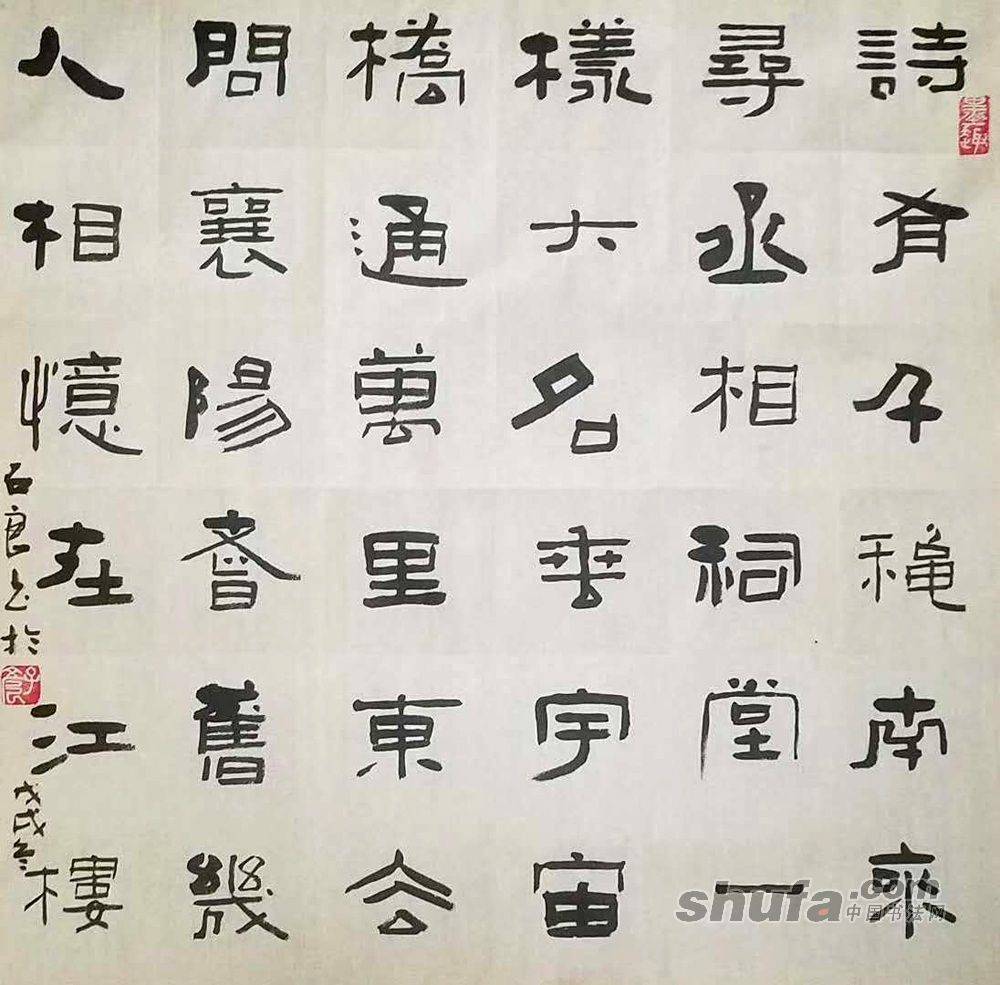 詩有千穐南來
尋丞相祠堂一
樣大名垂宇宙
橋通萬里東厺
問襄陽耆舊幾
人相憶在江樓
石良书於
戊戌冬
墨趣
shufa.com
中国书法网